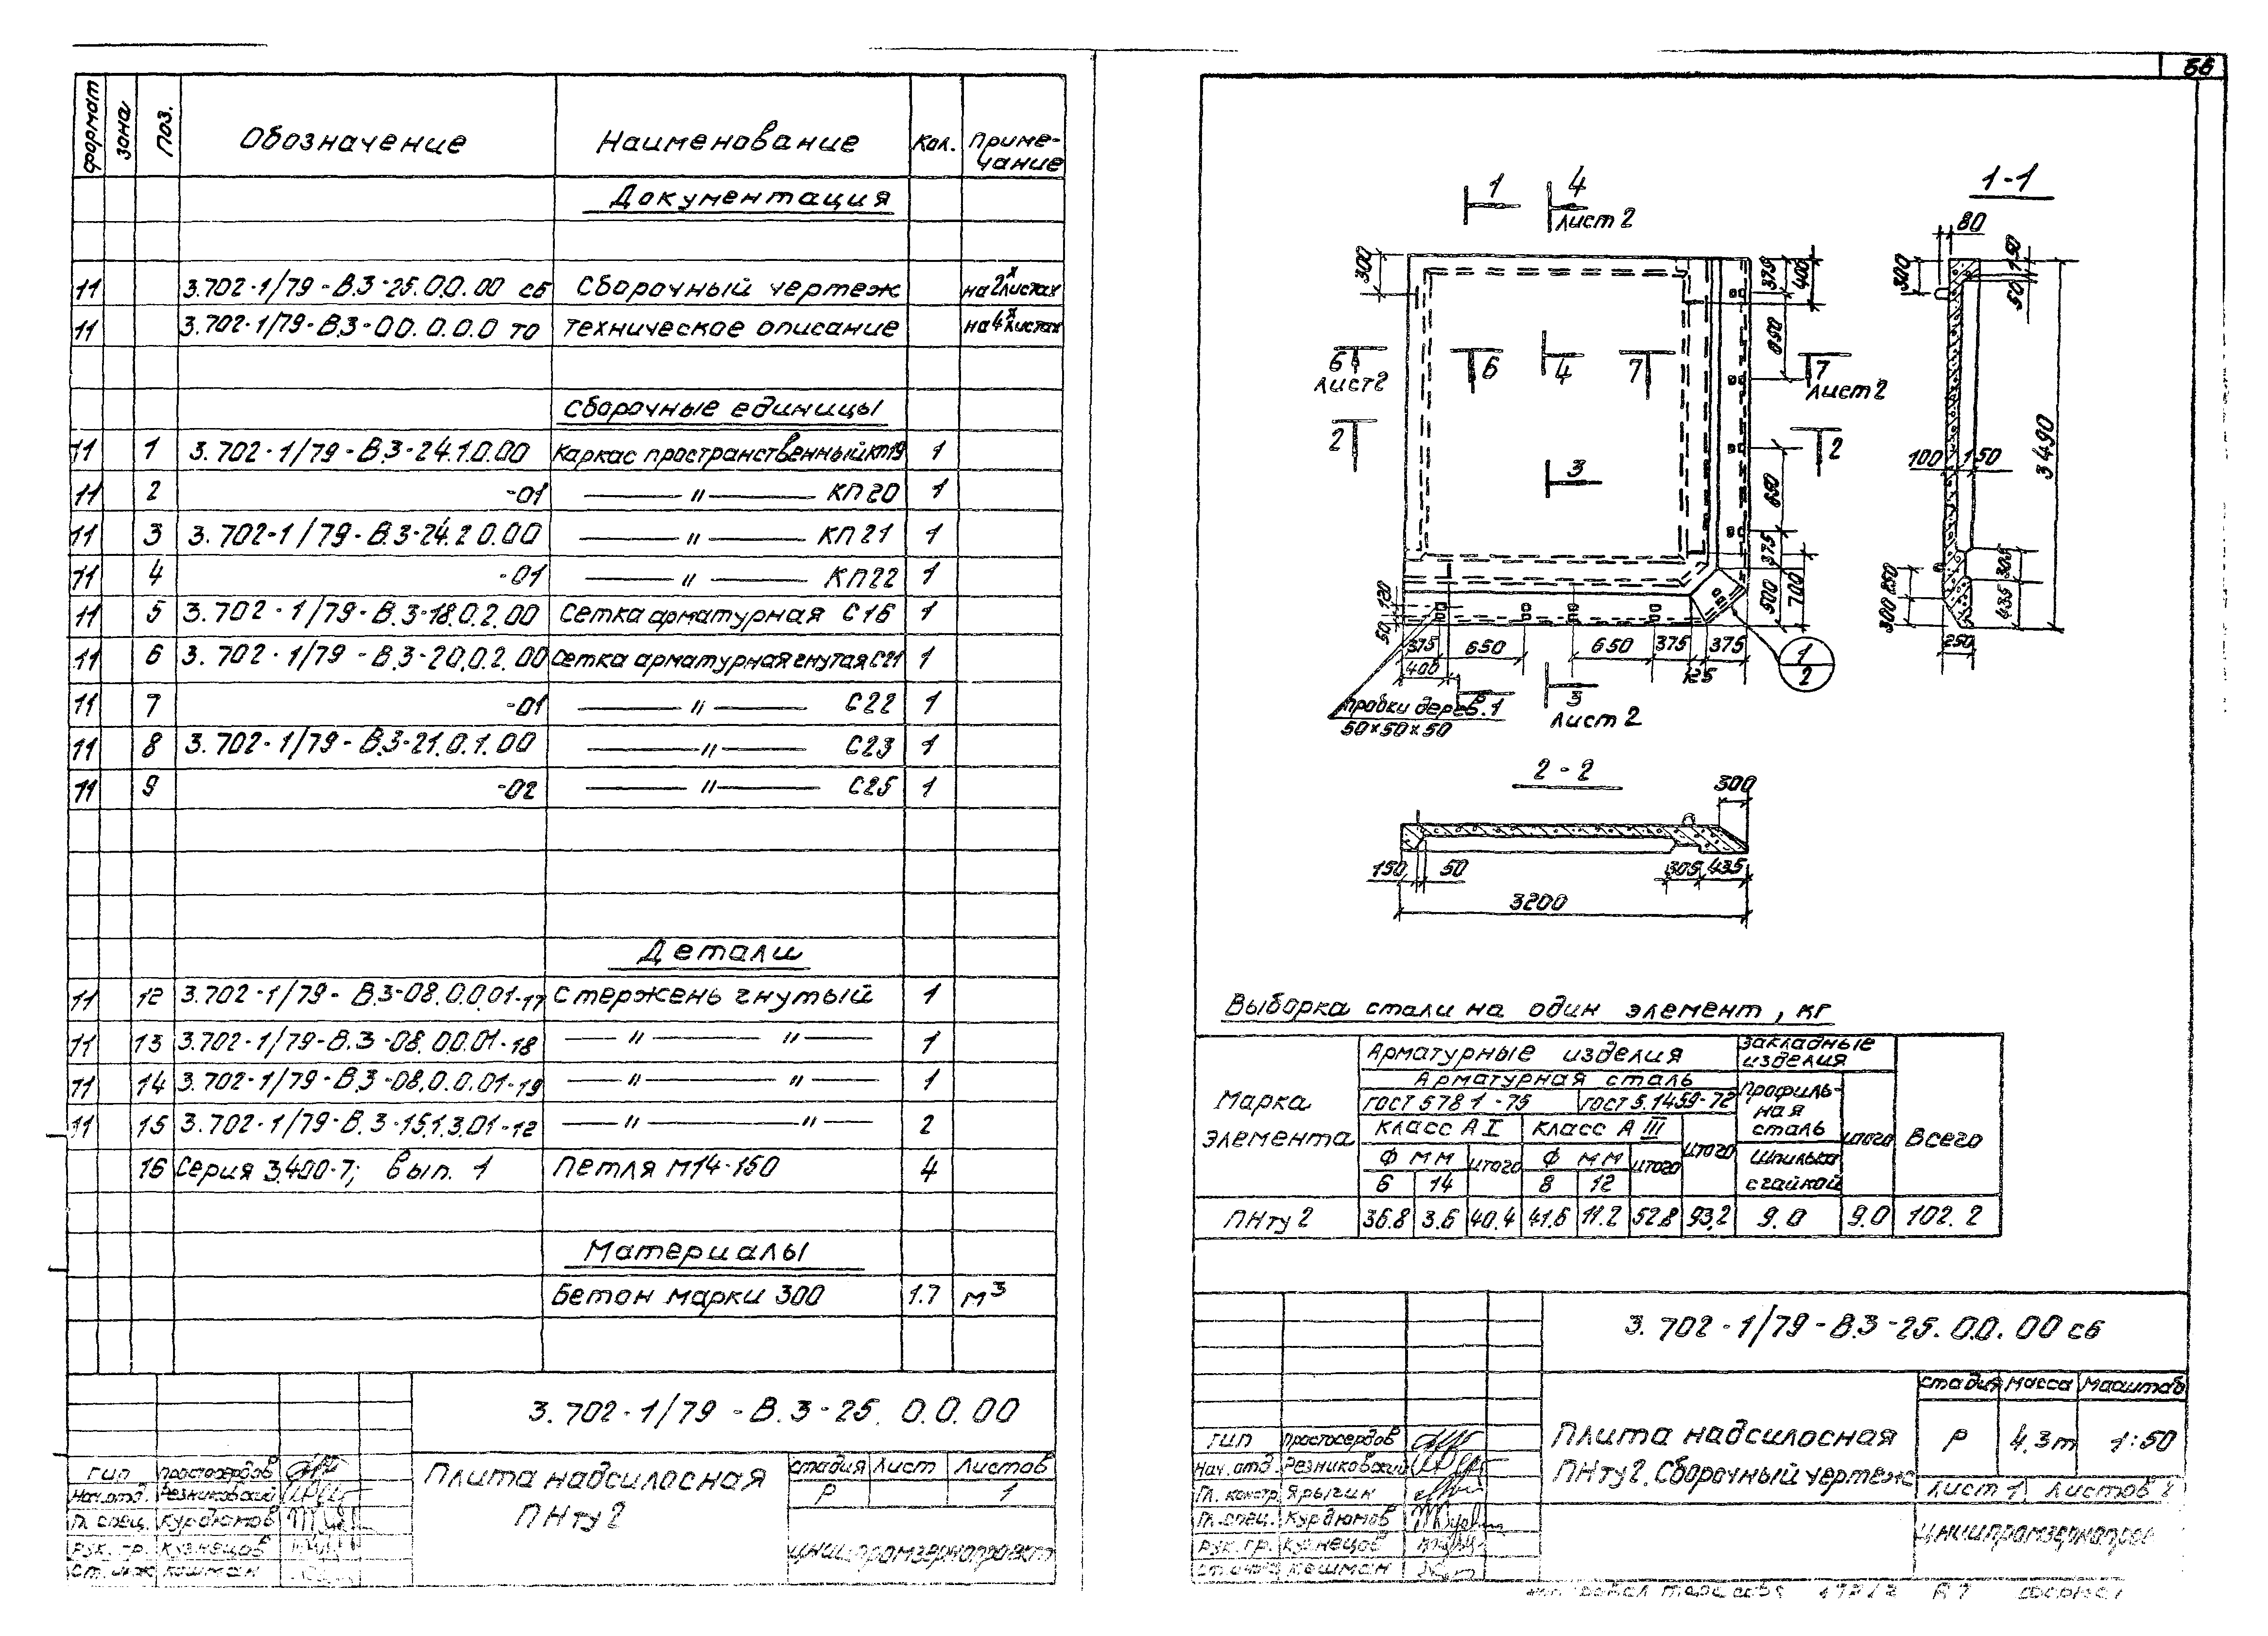 формат зона Поз. Обозначение Наименование Кол. Приме-
чание
Документация
11 3.702-1/79-В.3-25.0.0.00 сб Сборочный чертеж на 2х листах
11 3.702-1/79-В.3-00.0.0.0 то техническое описание на 4х листах
Сборочные единицы
11 1 3.702-1/79-В.3-24.1.0.00 Каркас пространственный КП19 1
11 2 -01 —"— КП20 1
11 3 3.702-1/79-В.3-24.2.0.00 —"— КП21 1
11 4 -01 —"— КП22 1
11 5 3.702-1/79-В.3-18.0.2.00 Сетка арматурная С16 1
11 6 3.702-1/79-В.3-20.0.2.00 Сетка арматурная гнутая С21 1
11 7 -01 —"— С22 1
11 8 3.702-1/79-В.3-21.0.1.00 —"— С23 1
11 9 -02 —"— С25 1
Детали
11 12 3.702-1/79-В.3-08.0.0.01-17 Стержень гнутый 1
11 13 3.702-1/79-В.3-08.0.0.01-18 —"— —"— 1
11 14 3.702-1/79-В.3-08.0.0.01-19 —"— —"— 1
11 15 3.702-1/79-В.3-15.1.3.01-12 —"— —"— 2
16 Серия 3.400-7; вып. 1 Петля М14-150 4
Материалы
Бетон марки 300 1.7 м³
3.702-1/79-В.3-25.0.0.00
Плита надсилосная
ПНту2
стадия лист листов
Р 1
ЦНИИпромзернопроект
ГИП Простосердов
Нач.отд. Резниковский
Гл. спец. Курдюмов
Рук. гр. Кузнецов
Ст. инж Кешман
1 4
лист 2
300
375
400
650
6 6 4 7 7
лист 2 лист 2
2 2
3
650
375
500
700
120
50
375 650 650 375 375
400 125
пробки дерев.
50×50×50
3
лист 2
1
2
1-1
80
300
150
50
100 150
3490
250
300
305
435
250
2-2
300
150 50 305 435
3200
Выборка стали на один элемент, кг
Марка
элемента
Арматурные изделия
Закладные
изделия
Арматурная сталь
ГОСТ 5781-75 ГОСТ 5.1459-72
Профиль-
ная
сталь
Класс АI Класс АIII итого итого Всего
Ф мм итого Ф мм итого
Шпилька
с гайкой
6 14 8 12
ПНту2 36.8 3.6 40.4 41.6 11.2 52.8 93.2 9.0 9.0 102.2
3.702-1/79-В.3-25.0.0.00 сб
Плита надсилосная
ПНту2. Сборочный чертеж
стадия масса масштаб
Р 4.3т 1:50
Лист 1 Листов 2
ЦНИИпромзернопроект
ГИП Простосердов
Нач.отд. Резниковский
Гл. констр. Ярыгин
Гл. спец. Курдюмов
Рук. гр. Кузнецов
Ст. инж Кешман